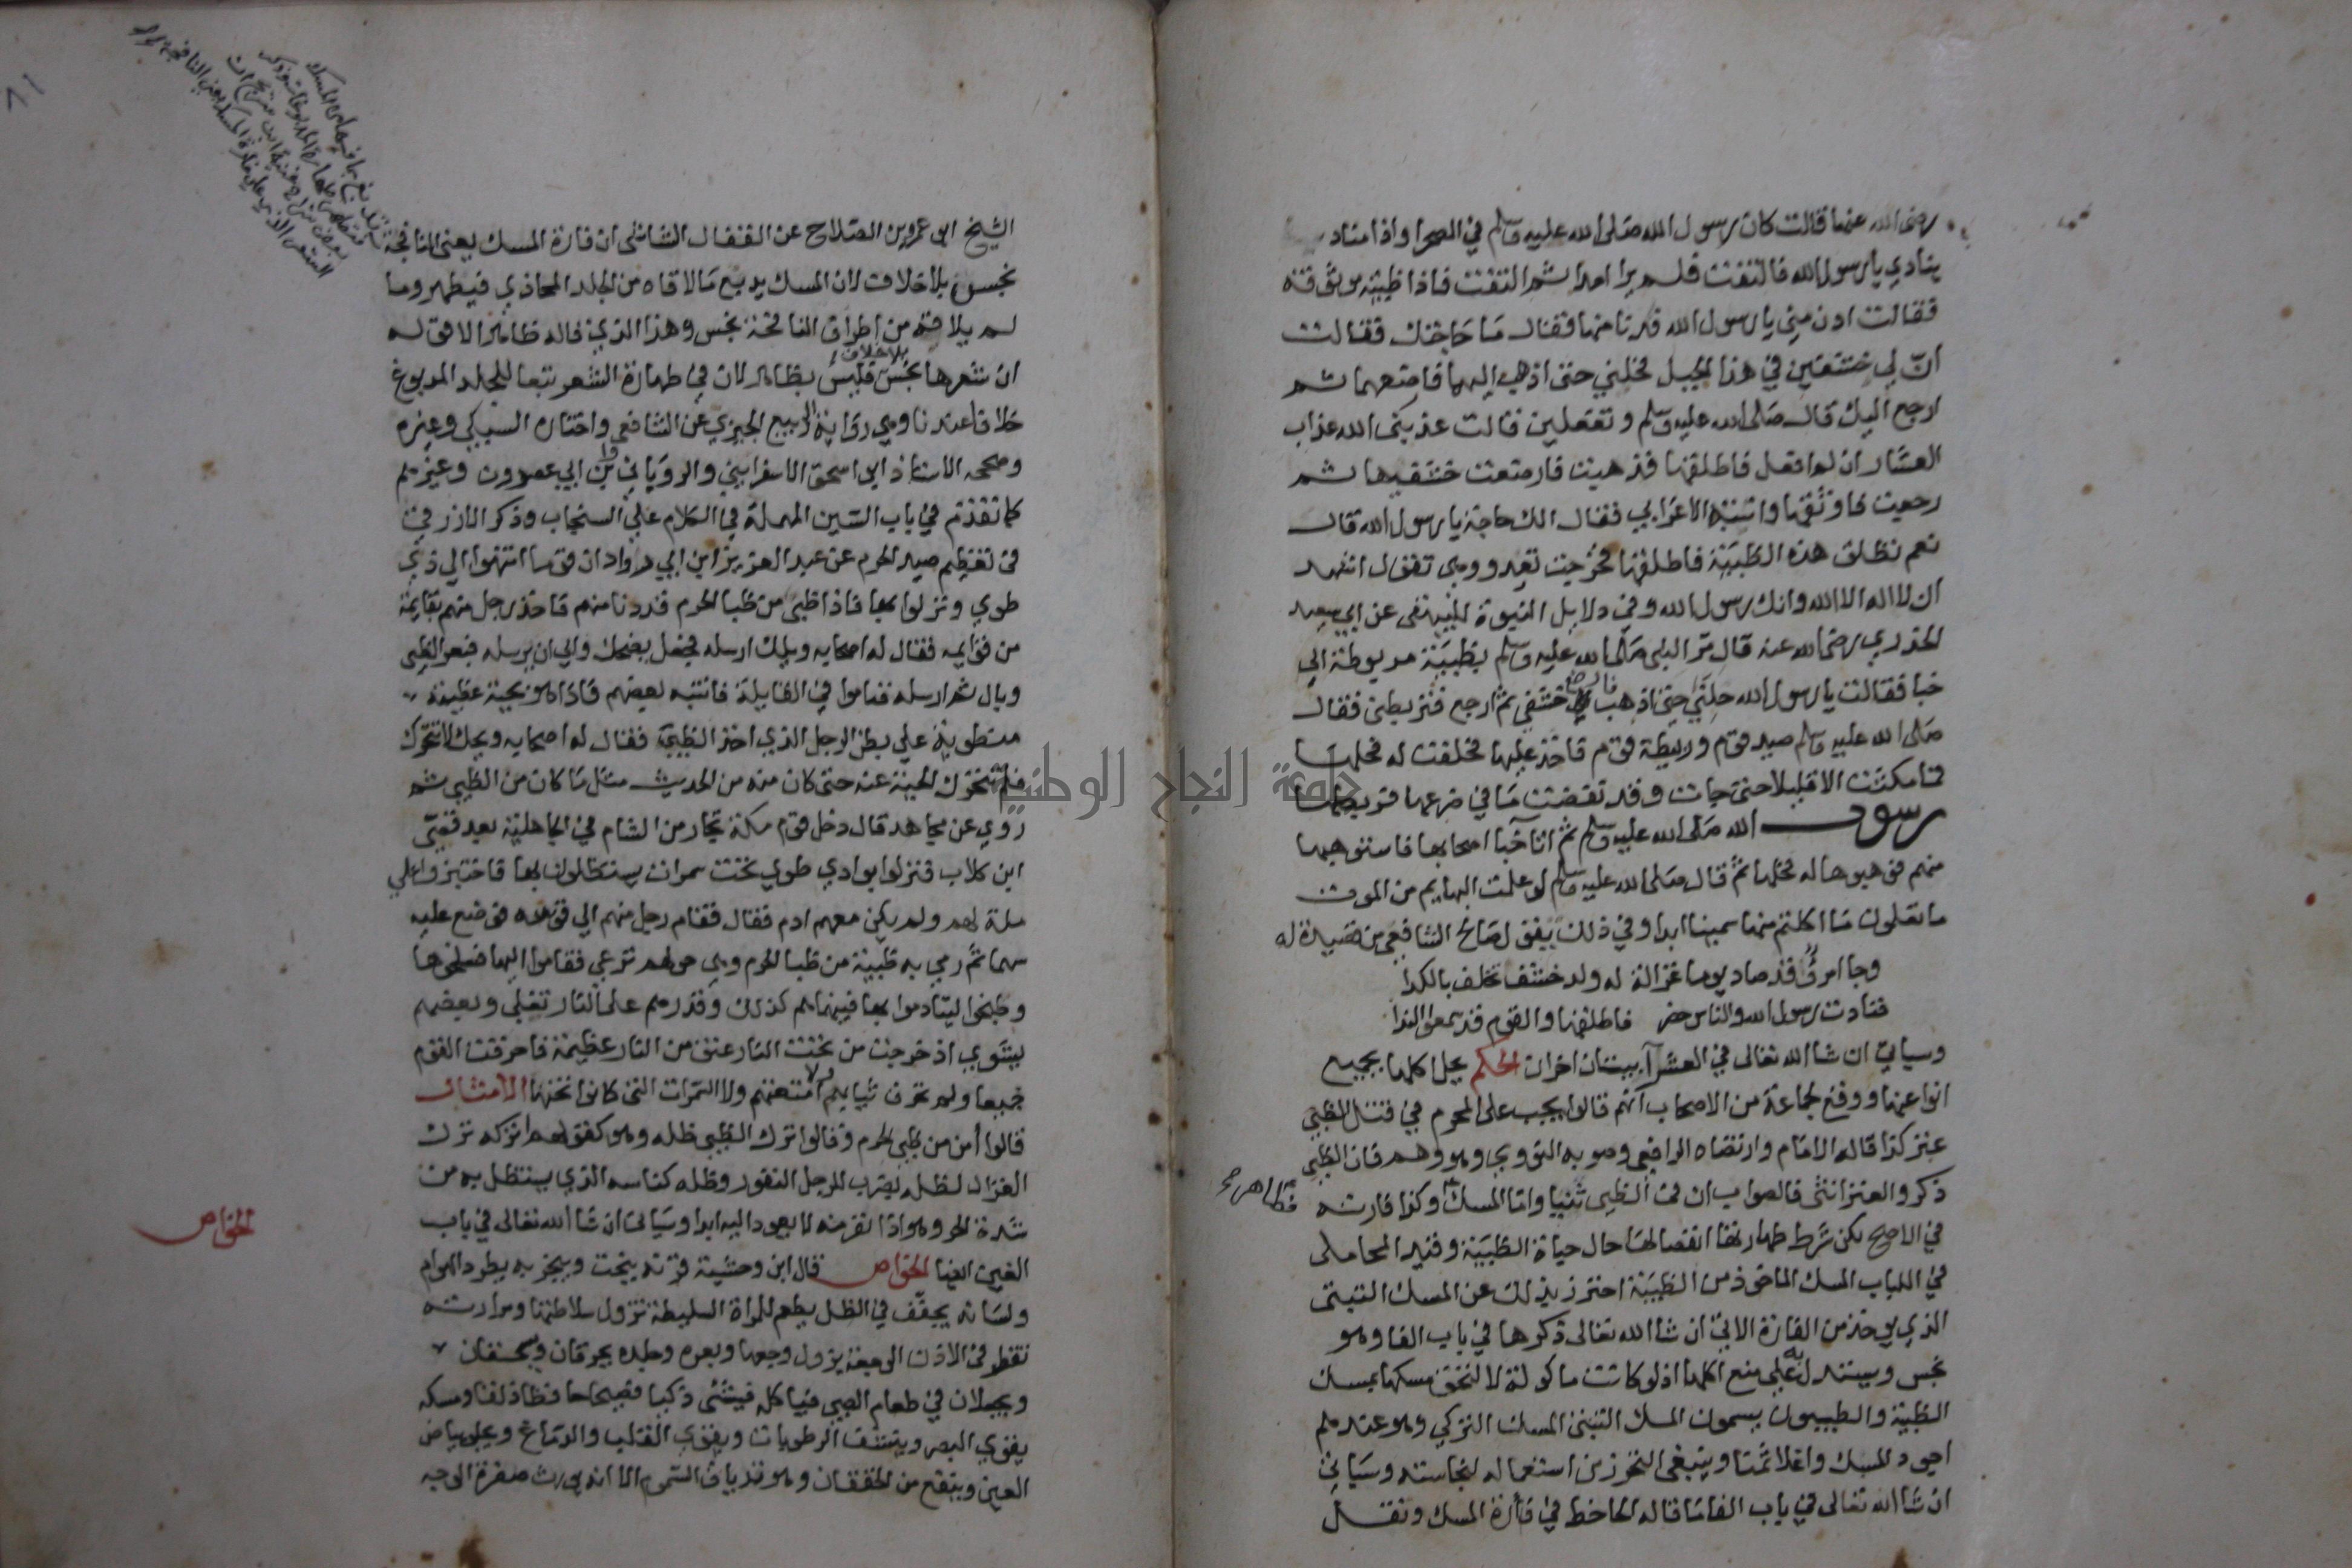 رضى الله عنها قالت كان رسول الله صلى الله عليه وسلم في الصحرا واذا مناد
ينادي يا رسول الله فالتفت فلم ير احدا ثم التفت فاذا ظبية موثوقة
فقالت ادن مني يا رسول الله فدنا منها فقال ما حاجتك فقالت
ان لي خشفين في هذا الجبل فخلني حتى اذهب اليهما فارضعهما ثم
ارجع اليك قال صلى الله عليه وسلم وتفعلين قالت عذبني الله عذاب
العشار ان لم افعل فاطلقها فذهبت فارضعت خشفيها ثم
رجعت فاوثقها وانتبه الاعرابي فقال الك حاجة يا رسول الله قال
نعم تطلق هذه الظبية فاطلقها فخرجت تعدو وهي تقول اشهد
ان لا اله الا الله وانك رسول الله وفي دلايل النبوة للبيهقى عن ابي سعيد
الخدري رضى الله عنه قال مر النبى صلى الله عليه وسلم بظبية مربوطة الي
خبا فقالت يا رسول الله حلني حتى اذهب فارضع خشفي ثم ارجع فتربطنى فقال
صلى الله عليه وسلم صيد قوم وربيطة قوم فاخذ عليها فحلفت له فحلها
فما مكثت الا قليلا حتى جات وقد نفضت ما في ضرعها فربطها
رسول الله صلى الله عليه وسلم ثم اتا خبا اصحابها فاستوهبها
منهم فوهبوها له فحلها ثم قال صلى الله عليه وسلم لو علمت البهايم من الموت
ما تعلمون ما اكلتم منها سمينا ابدا وفي ذلك يقول صالح الشافعي من قصيدة له
وجا امرؤ قد صاد يوما غزالة له ولد خشف تخلف بالكدا
فنادت رسول الله والناس حضر فاطلقها والقوم قد سمعوا الندا
وسياتي ان شا الله تعالى في العشرا بيتان اخران الحكم يحل اكلها بجميع
انواعها ووقع لجماعة من الاصحاب انهم قالوا يجب على المحرم في قتل الظبي
عنز كذا قاله الامام وارتضاه الرافعي وصوبه النووي وهو وهم فان الظبي
ذكر والعنز انثى فالصواب ان في الظبى ثنيا واما المسك فطاهر صح وكذا فارته
في الاصح لكن شرط طهارتها انفصالها حال حياة الظبية وقيد المحاملى
في اللباب المسك الماخوذ من الظبية احترز بذلك عن المسك التبتى
الذي يوخذ من الفارة الاتي ان شا الله تعالى ذكرها في باب الفا وهو
نجس ويستدل به على منع اكلها اذ لو كانت ماكولة لالتحق مسكها بمسك
الظبية والطيبيون يسمون المسك التبتى المسك التركي وهو عندهم
اجود المسك واغلا ثمنا وينبغى التحرز من استعماله لنجاسته وسياتي
ان شا الله تعالى في باب الفا ما قاله الجاحظ في فارة المسك ونقل
الشيخ ابو عمرو بن الصلاح عن القفال الشاشى ان فارة المسك يعنى النافجة
نجس بلا خلاف لان المسك يدبغ ما لاقاه من الجلد المحاذي فيطهر وما
لم يلاقه من اطراف النافجة نجس وهذا الذي قاله ظاهر الا قوله
ان شعرها نجس بلا خلاف فليس بظاهر لان في طهارة الشعر تبعا للجلد المدبوغ
خلافا عندنا وهي رواية الربيع الجيزي عن الشافعي واختاره السبكي وغيره
وصححه الاستاذ ابو اسحق الاسفرايني والروياني وابن ابي عصرون وغيرهم
كما تقدم في باب السين المهملة في الكلام على السنجاب وذكر الازرقي
في تعظيم صيد الحرم عن عبد العزيز ابن ابي رواد ان قوما انتهوا الي ذي
طوي ونزلوا بها فاذا ظبى من ظبا الحرم قد دنا منهم فاخذ رجل منهم بقايمة
من قوايمه فقال له اصحابه ويلك ارسله فجعل يضحك وابي ان يرسله فبعر الظبى
وبال ثم ارسله فناموا في القايلة فانتبه بعضهم فاذا هو بحية عظيمة
منطوية على بطن الرجل الذي اخذ الظبي فقال له اصحابه ويحك لا تتحرك
فلم تتحرك الحية عنه حتى كان منه من الحدث مثل ما كان من الظبى ثم
روي عن مجاهد قال دخل قوم مكة تجار من الشام في الجاهلية بعد قصى
ابن كلاب فنزلوا بوادي طوي تحت سمرات يستظلون بها فاختبزوا علي
ملة لهم ولم يكن معهم ادم فقال فقام رجل منهم الي قوسه فوضع عليه
سهما ثم رمي به ظبية من ظبا الحرم وهي حولهم ترعي فقاموا اليها فسلخوها
وطبخوا ليتادموا بها فبينما هم كذلك وقدرهم على النار تغلي وبعضهم
يشوي اذ خرجت من تحت النار عنق من النار عظيمة فاحرقت القوم
جميعا ولم تحرق ثيابهم ولا امتعتهم ولا السمرات التى كانوا تحتها الامثال
قالوا امن من ظبي الحرم وقالوا ترك الظبي ظله وهو كقولهم اتركه ترك
الغزال لظله يضرب للرجل النفور وظله كناسه الذي يستظل به من
شدة الحر وهو اذا نفر منه لا يعود اليه ابدا وسياتى ان شا الله تعالى في باب
الغين ايضا الخواص قال ابن وحشية قرنه ينحت ويبخر به يطرد الهوام
ولسانه يجفف في الظل يطعم للمراة السليطة تزول سلاطتها ومرارته
تقطر فى الاذن الوجعة يزول وجعها وبعره وجلده يحرقان ويسحقان
ويجعلان في طعام الصبي فياكله فينشئى ذكيا فصيحا حافظا ذلقا ومسكه
يقوي البصر وينشف الرطوبات ويقوي القلب والدماغ ويجلي بياض
العين وينفع من الخفقان وهو ترياق السموم الا انه يورث صفرة الوجه
الخواص